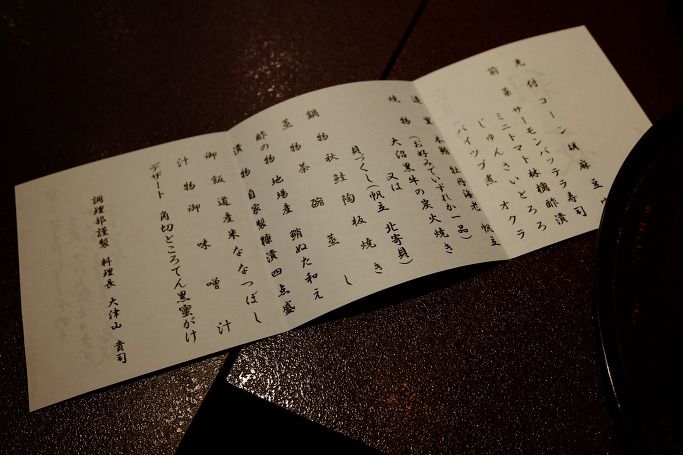 先付 コーン胡麻豆
前菜 サーモンバッテラ寿司
ミニトマト林檎酢漬
じゅんさいとろろ
パイップ煮 オクラ
道 牡丹海老 帆立
焼物 (お好みでいずれか一品)
大沼黒牛の炭火焼き
又は 北寄貝)
貝づくし(帆立
鍋物 秋鮭陶板焼き
蒸物 茶碗蒸し
酢の物 地場産 鮹ぬた和え
漬物 自家製糠漬四点盛
御飯 道産米ななつぼし
汁物 御味噌汁
デザート 角切ところてん黒蜜がけ
調理部謹製 料理長 大津山 貴司